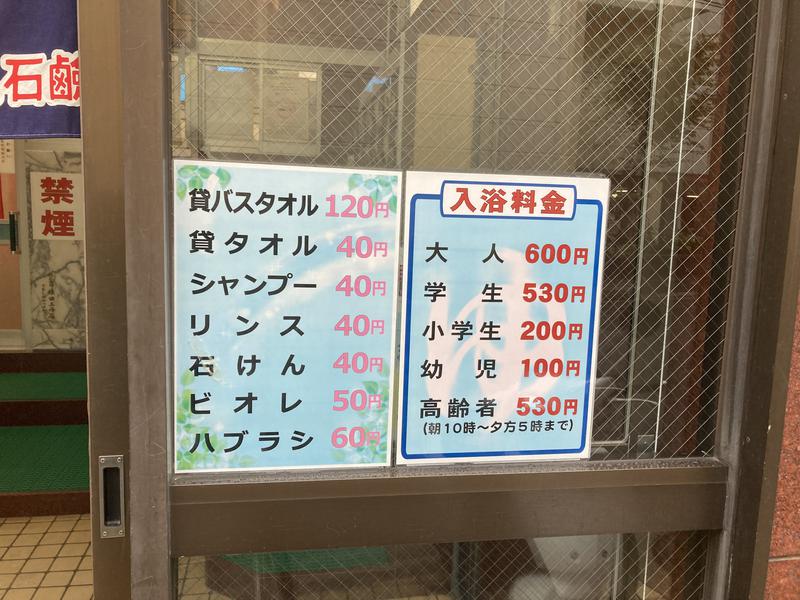 石鹸
禁煙
貸バスタオル 120円
貸タオル 40円
シャンプー 40円
リンス 40円
石けん 40円
ビオレ 50円
ハブラシ 60円
入浴料金
大人 600円
学生 530円
小学生 200円
幼児 100円
高齢者 530円
(朝10時～夕方5時まで)
ゆ